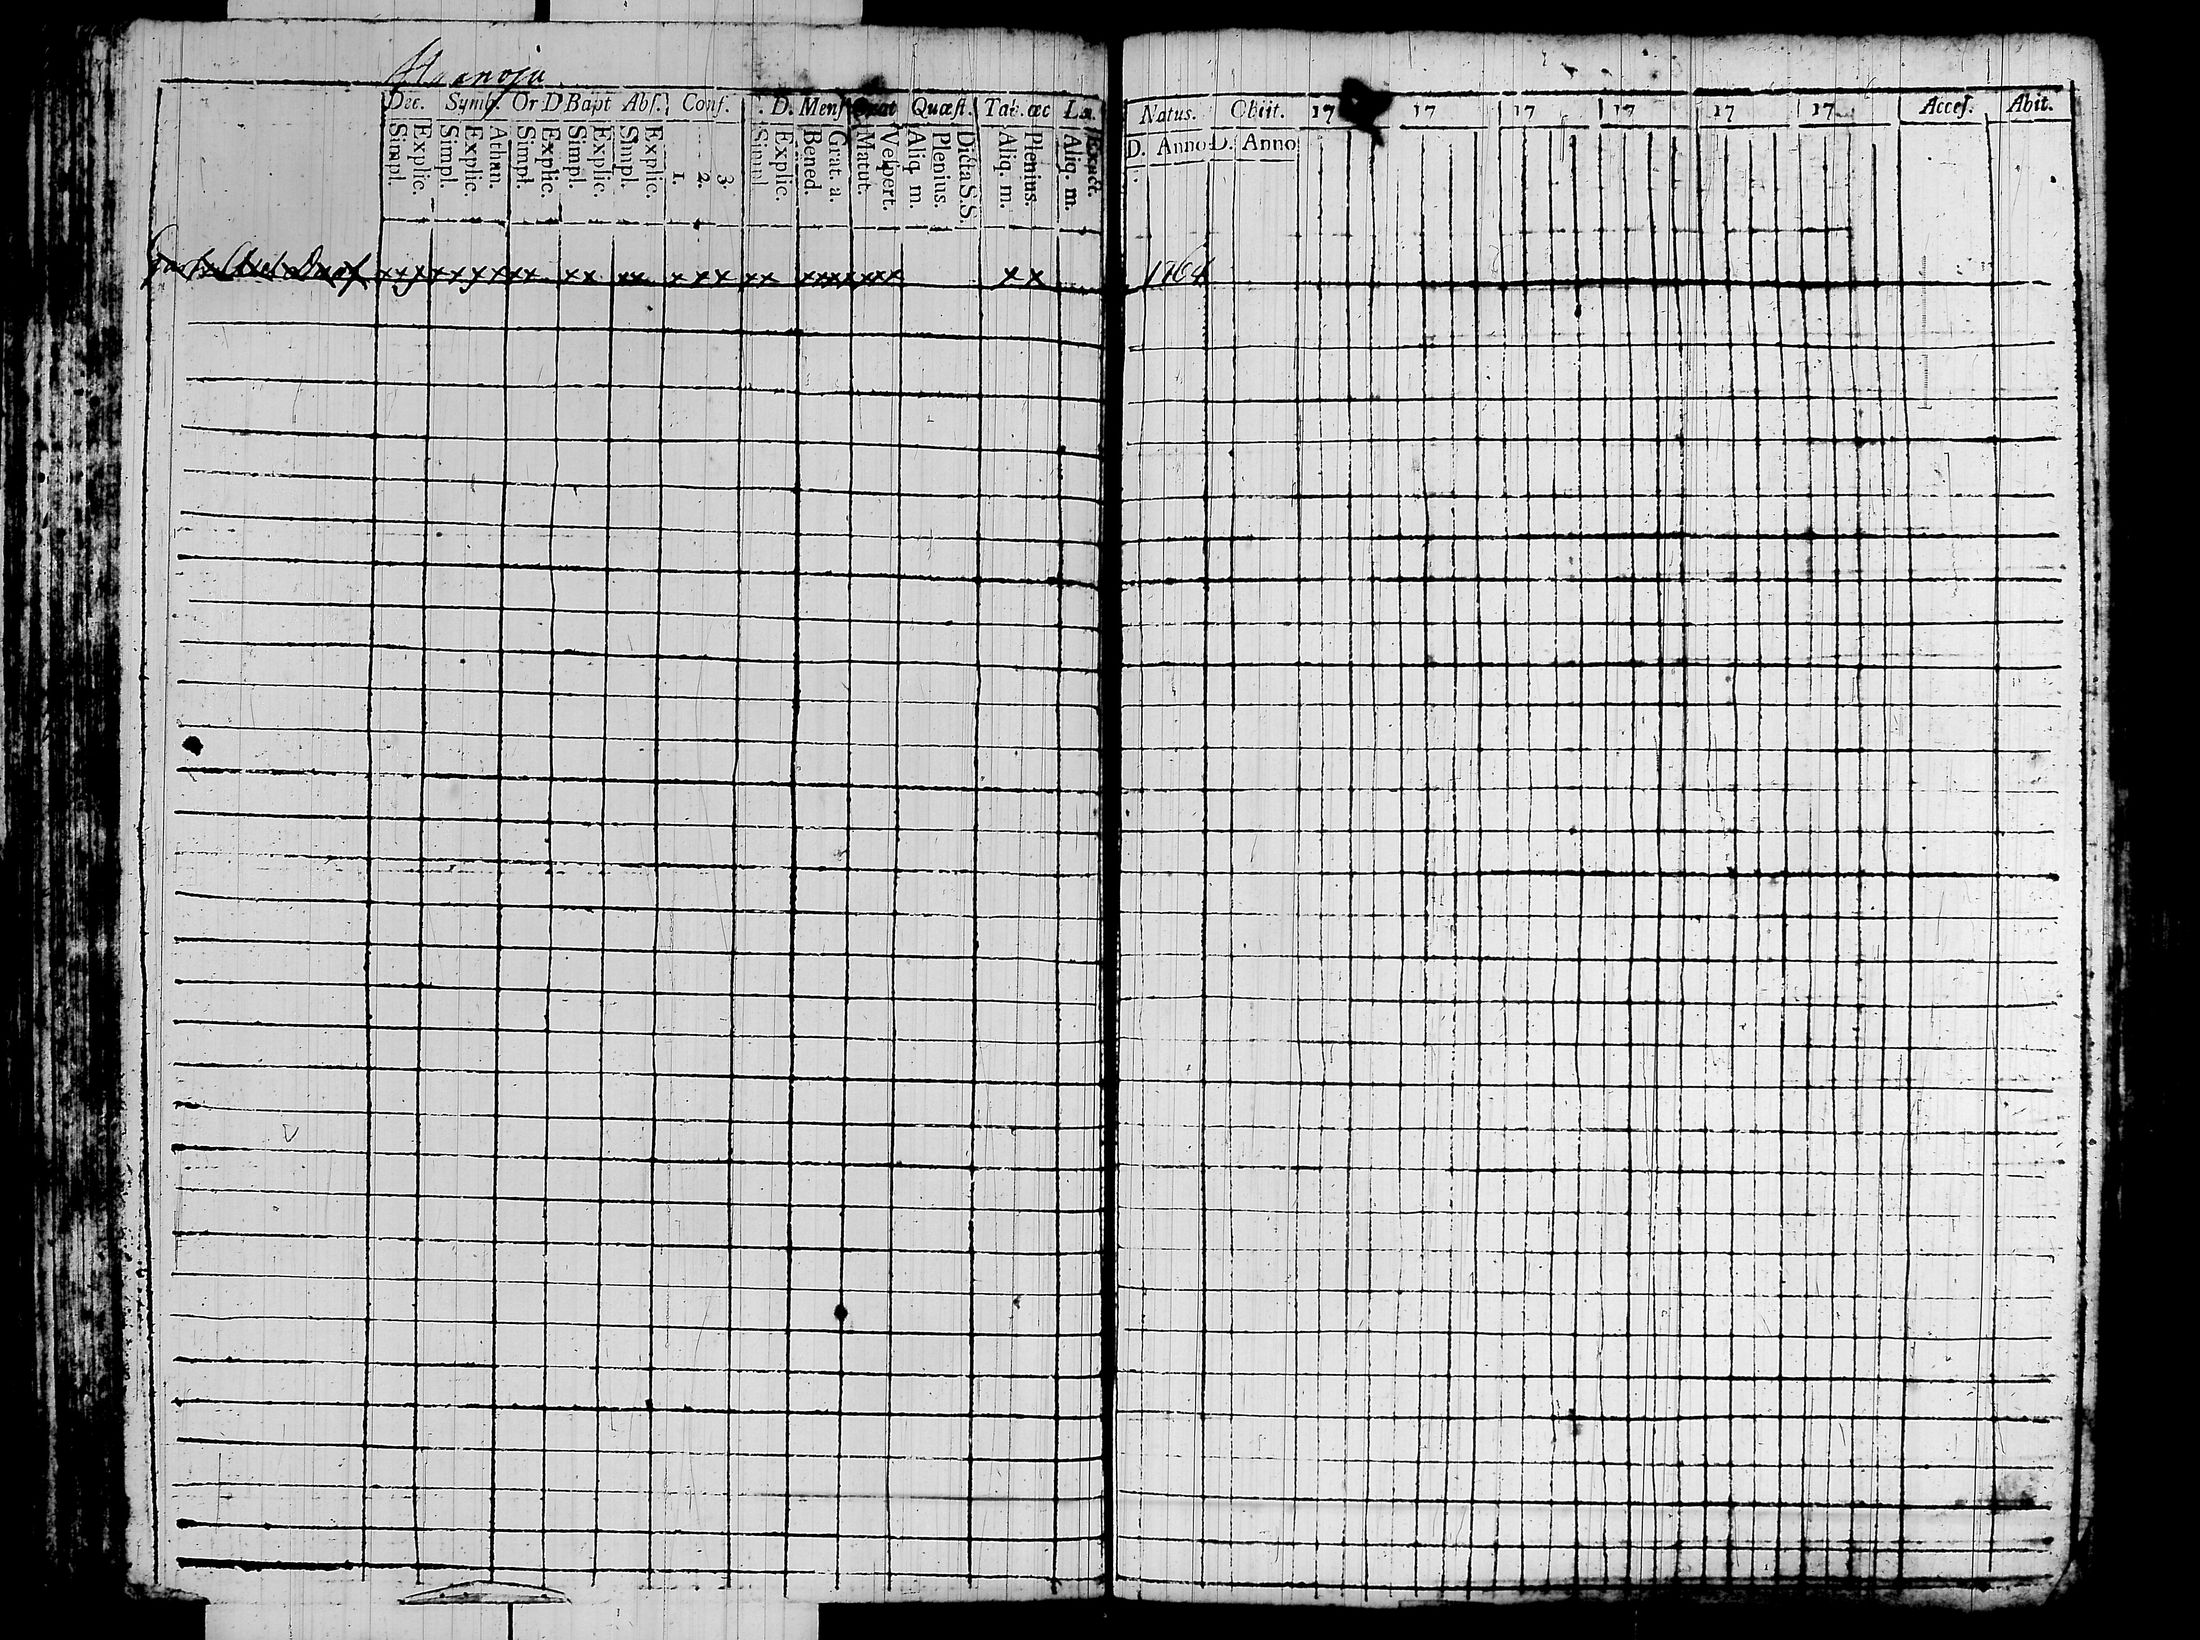 Dec. Symb. Or D Bapt Abs. Conf. D. Mens Quæst. Tab. æc La.
Simpl. Explic. Simpl. Explic. Athan. Simpl. Explic. Simpl. Explic. Simpl. Explic. 1. 2. 3. Simpl Explic. Bened. Grat. a. Matut. Vespert. Aliq. m. Plenius. Dicta S.S. Aliq. m. Plenius. Aliq. m. Exact.
Natus. Obiit. 17 17 17 17 17 17 Acces. Abit.
D. Anno D. Anno
1764